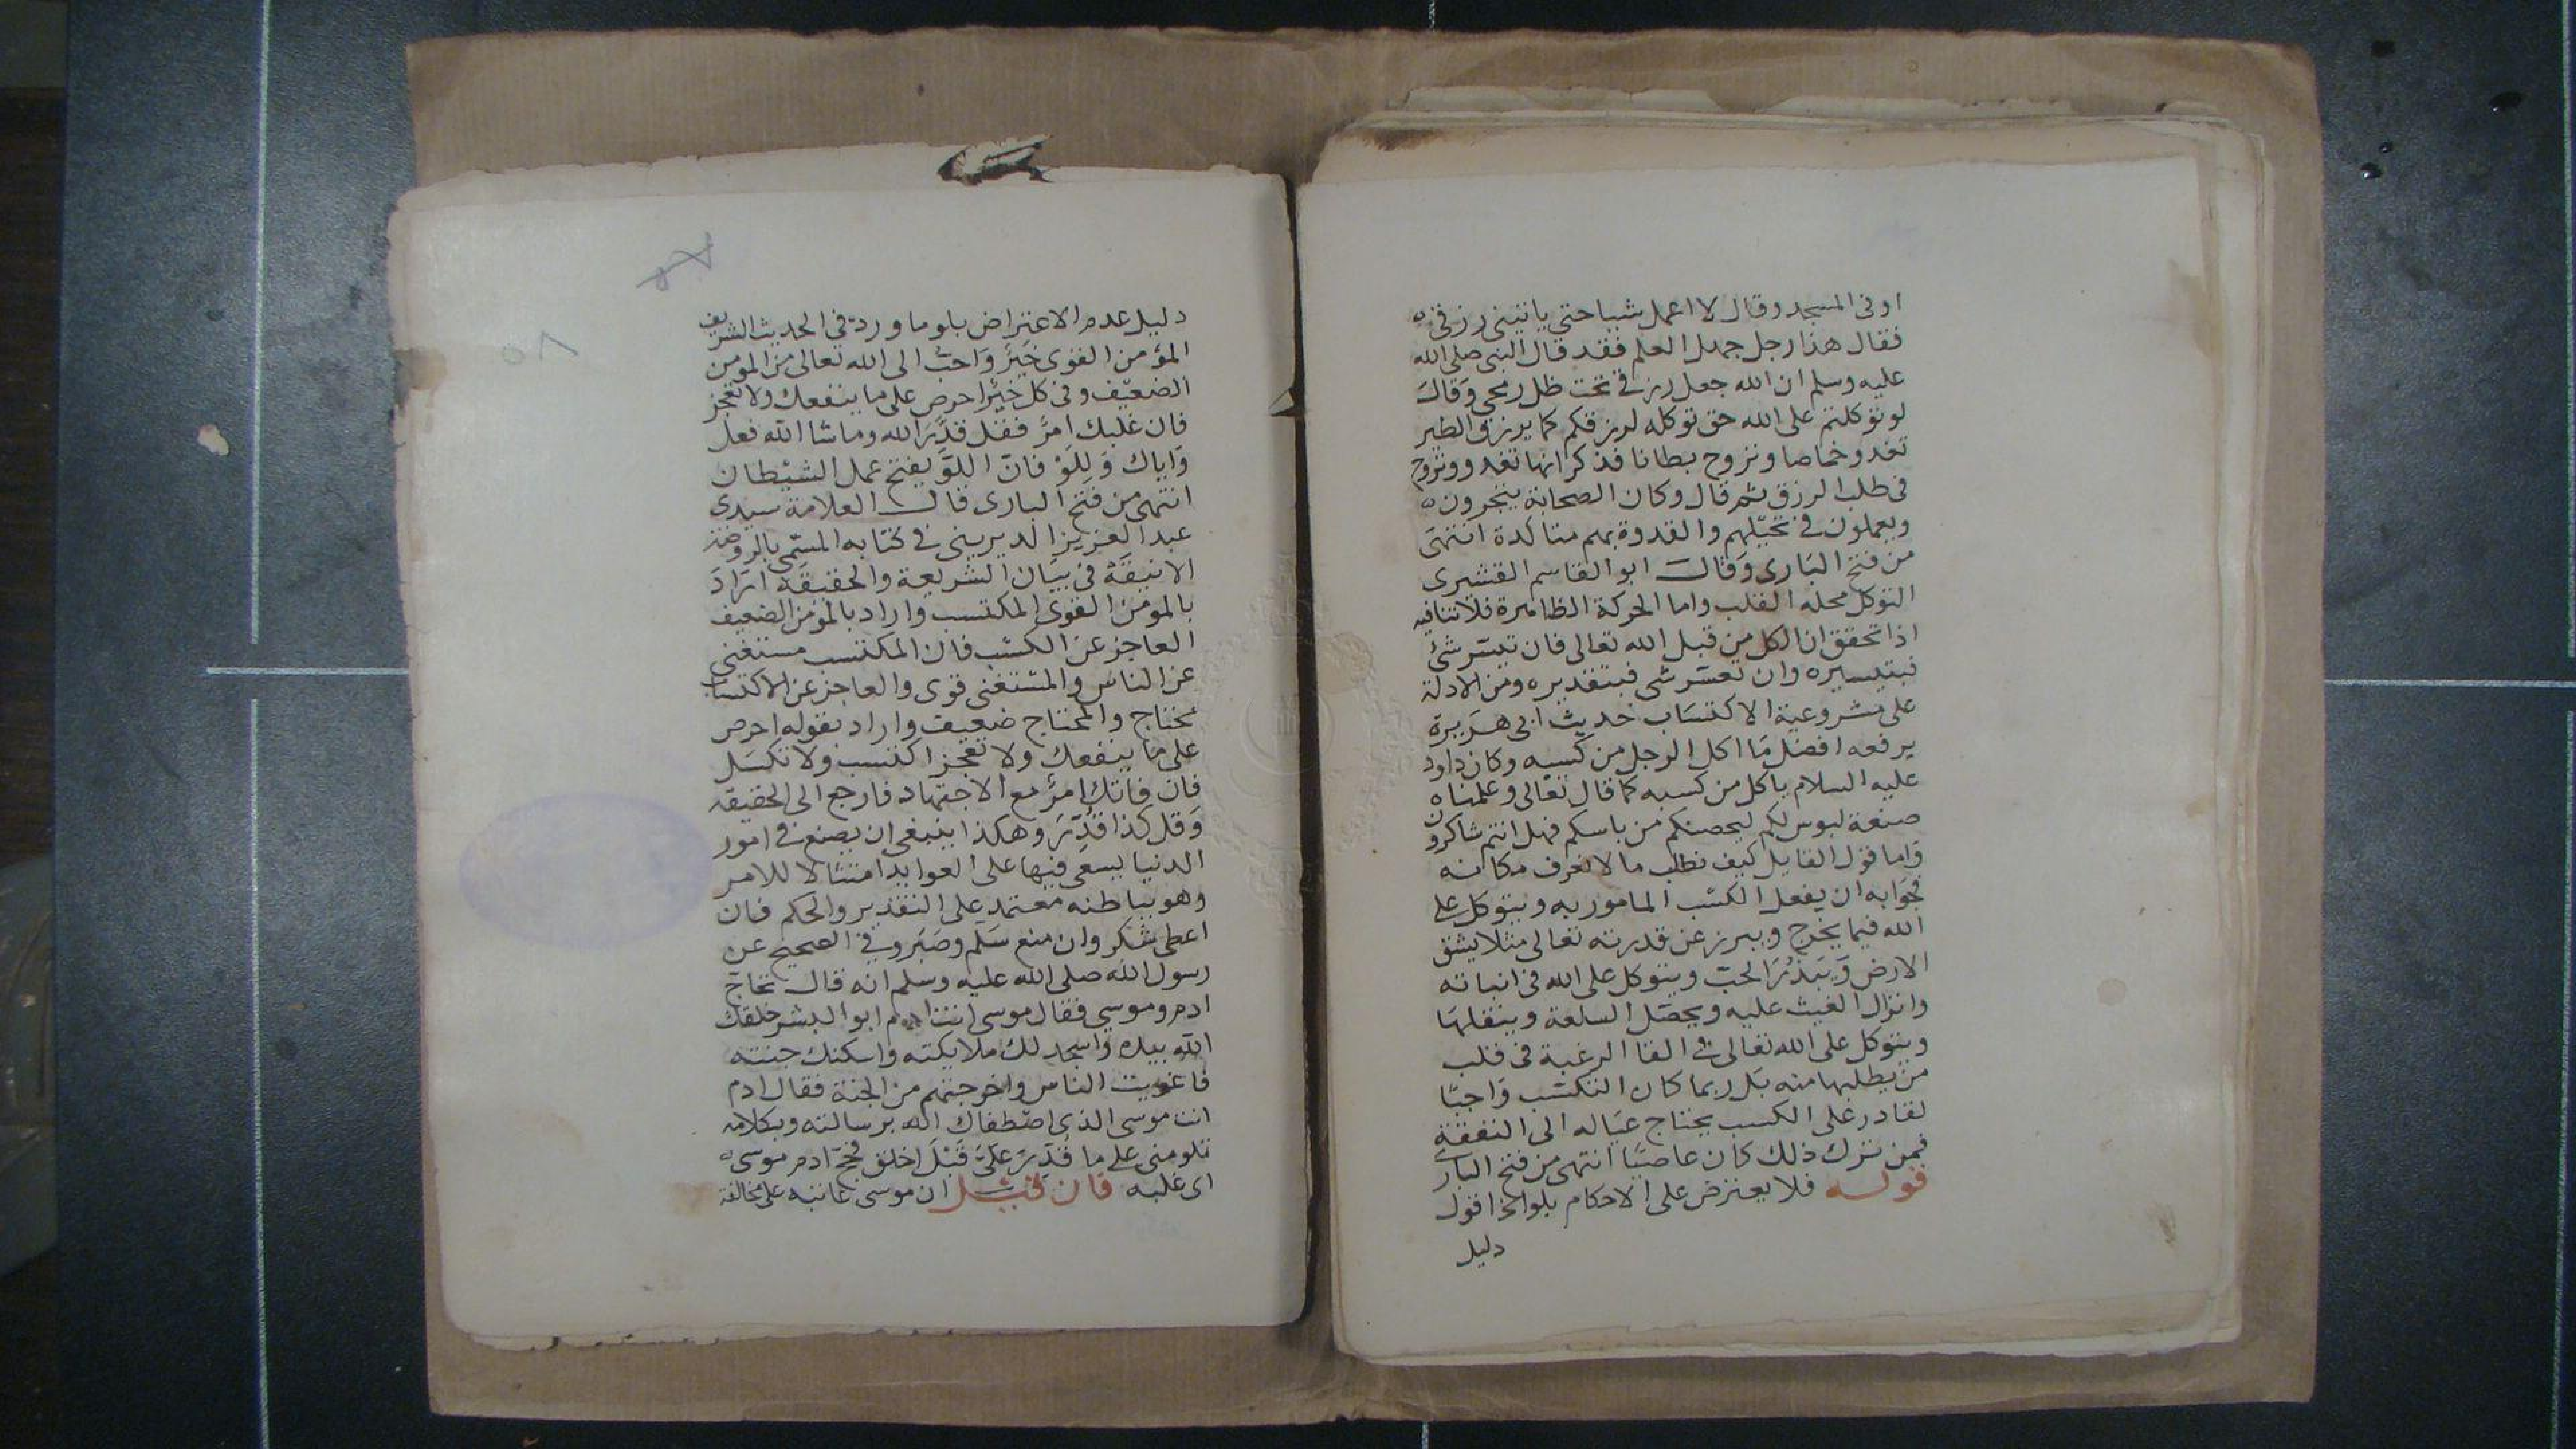 او فى المسجد وقال لا اعمل شيا حتى ياتينى رزقى
فقال هذا رجل جهل العلم فقد قال النبى صلى الله
عليه وسلم ان الله جعل رزقى تحت ظل رمحى وقال
لو توكلتم على الله حق توكله لرزقكم كما يرزق الطير
تغدو خماصا وتروح بطانا فذكر انها تغدو وتروح
فى طلب الرزق ثم قال وكان الصحابة يتجرون
ويعملون فى نخيلهم والقدوة بهم متاكدة انتهى
من فتح البارى وقال ابو القاسم القشيرى
التوكل محله القلب واما الحركة الظاهرة فلا تنافيه
اذا تحقق ان الكل من قبل الله تعالى فان تيسر شئ
فبتيسيره وان تعسر شى فبتقديره ومن الادلة
على مشروعية الاكتساب حديث ابى هريرة
يرفعه افضل ما اكل الرجل من كسبه وكان داود
عليه السلام ياكل من كسبه كما قال تعالى وعلمناه
صنعة لبوس لكم ليحصنكم من باسكم فهل انتم شاكرون
واما قول القايل كيف نطلب ما لا نعرف مكانه
فجوابه ان يفعل الكسب المامور به ويتوكل على
الله فيما يخرج ويبرز عن قدرته تعالى مثلا يشق
الارض ويبذر الحب ويتوكل على الله فى انباته
وانزال الغيث عليه ويحصل السلعة وينقلها
ويتوكل على الله تعالى فى القا الرغبة فى قلب
من يطلبها منه بل ربما كان التكسب واجبا
لقادر على الكسب يحتاج عياله الى النفقة
فمن ترك ذلك كان عاصيا انتهى من فتح البارى
قوله فلا يعترض على الاحكام بلو الخ اقول
دليل
دليل عدم الاعتراض بلو ما ورد فى الحديث الشريف
المؤمن القوى خير واحب الى الله تعالى من المومن
الضعيف وفى كل خير احرص على ما ينفعك ولا تعجز
فان غلبك امر فقل قدر الله وما شا الله فعل
واياك ولو فان اللو يفتح عمل الشيطان
انتهى من فتح البارى قال العلامة سيدى
عبد العزيز الديرينى فى كتابه المسمى بالروضة
الانيقة فى بيان الشريعة والحقيقة اراد
بالمومن القوى المكتسب واراد بالمومن الضعيف
العاجز عن الكسب فان المكتسب مستغنى
عن الناس والمستغنى قوى والعاجز عن الاكتساب
محتاج والمحتاج ضعيف واراد بقوله احرص
على ما ينفعك ولا تعجز اكتسب ولا تكسل
فان فاتك امر مع الاجتهاد فارجع الى الحقيقة
وقل كذا قدر وهكذا ينبغى ان يصنع فى امور
الدنيا يسعى فيها على العوايد امتثالا للامر
وهو بباطنه معتمد على التقدير والحكم فان
اعطى شكر وان منع سلم وصبر وفى الصحيح عن
رسول الله صلى الله عليه وسلم انه قال تحاج
ادم وموسى فقال موسى انت ادم ابو البشر خلقك
الله بيده واسجد لك ملايكته واسكنك جنته
فاغويت الناس واخرجتهم من الجنة فقال ادم
انت موسى الذى اصطفاك الله برسالته وبكلامه
تلومنى على ما قدر على قبل اخلق فحج ادم موسى
اى غلبه فان قيل ان موسى عاتبه على مخالفة
٥٨